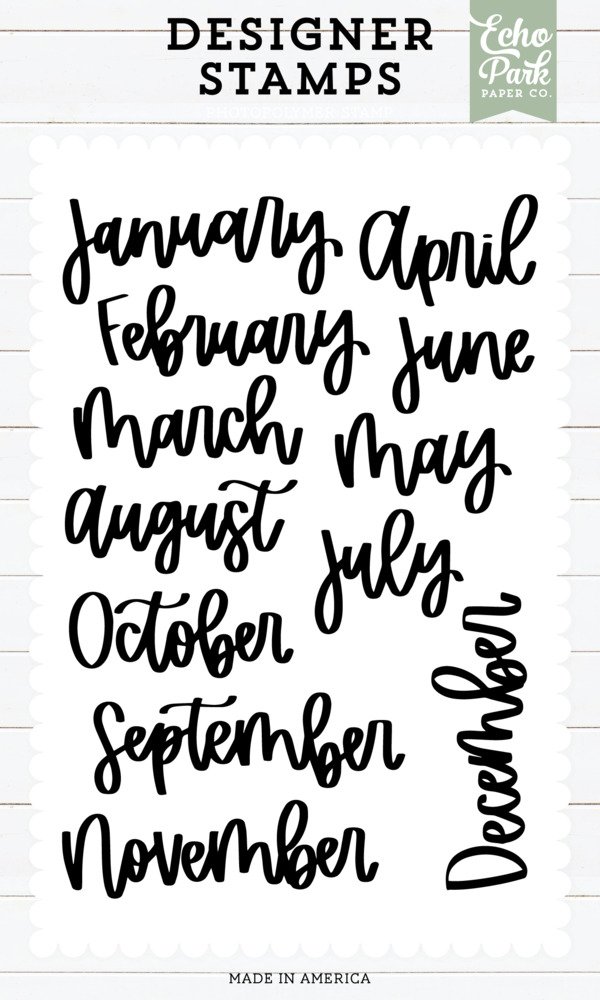 DESIGNER
STAMPS
PHOTOPOLYMER STAMP
Echo
Park
PAPER CO.
January
April
February
June
March
May
August
July
October
September
December
November
MADE IN AMERICA